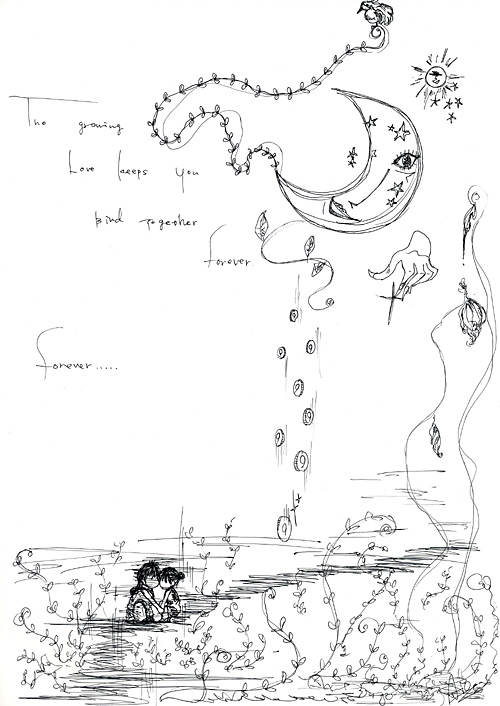 The growing
Love keeps you
bind together
forever
forever.....